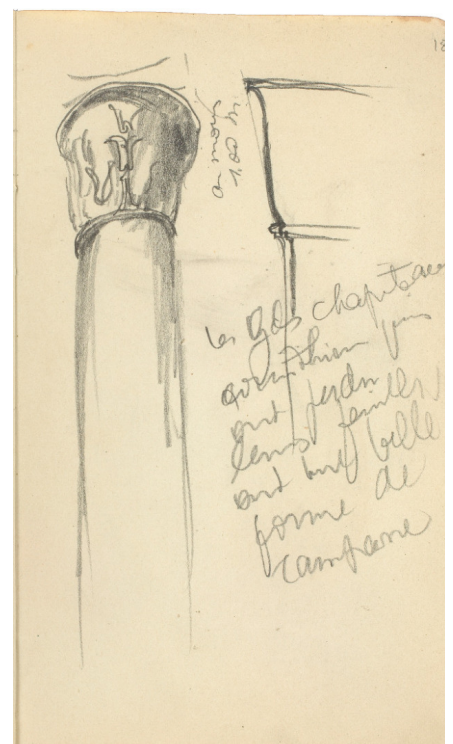 18
a moins
1,00 m.
les gds chapiteaux
corinthiens qui
ont perdu
leurs feuilles
ont une belle
forme de
campane